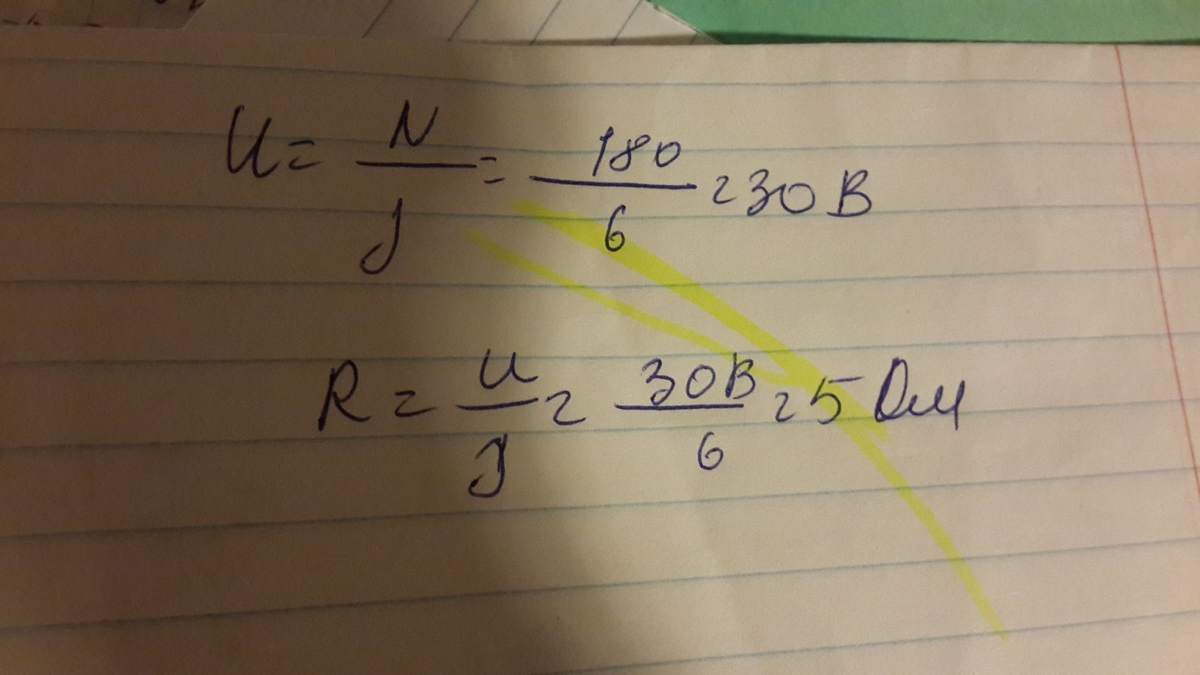 U = N/J = 180/6 = 30 В
R = U/J = 30В/6 = 5 Ом